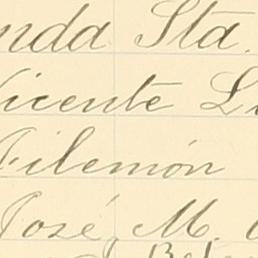 nda Sta.
Vicente L
Filemón
José, M.